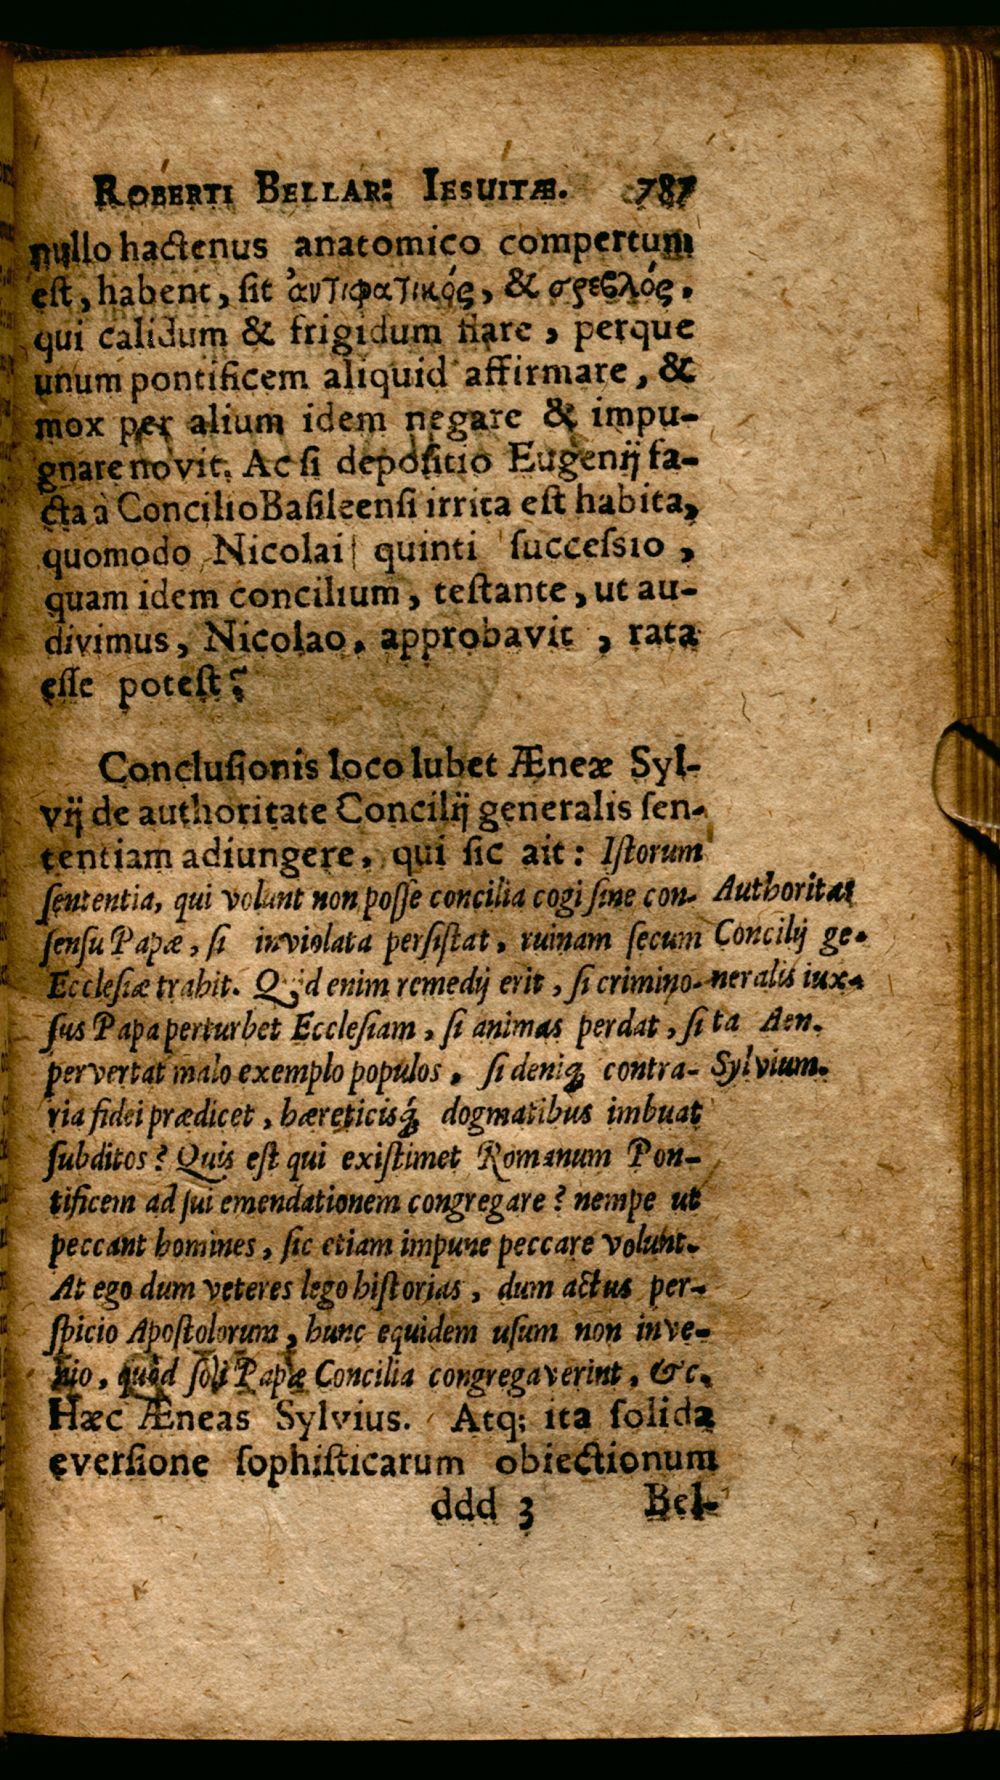 ROBERTI BELLAR: IESUITÆ. 787
nullo hactenus anatomico compertum
est, habent, sit ἀντιφατικός, & στρεβλός.
qui calidum & frigidum flare, perque
unum pontificem aliquid affirmare, &
mox per alium idem negare & impu-
gnare novit. Ac si depositio Eugenij fa-
cta à Concilio Basileensi irrita est habita,
quomodo Nicolai quinti successio,
quam idem concilium, testante, ut au-
divimus, Nicolao, approbavit, rata
esse potest?
Conclusionis loco lubet Æneæ Syl-
vij de authoritate Concilij generalis sen-
tentiam adiungere, qui sic ait: Istorum
sententia, qui volunt non posse concilia cogi sine con-
sensu Papæ, si inviolata persistat, ruinam secum
Ecclesiæ trahit. Quid enim remedij erit, si crimino-
sus Papa perturbet Ecclesiam, si animas perdat, si
pervertat malo exemplo populos, si deniq; contra-
ria fidei prædicet, hæreticisq́; dogmatibus imbuat
subditos? Quis est qui existimet Romanum Pon-
tificem ad sui emendationem congregare? nempe ut
peccant homines, sic etiam impune peccare volunt.
At ego dum veteres lego historias, dum actus per-
spicio Apostolorum, hunc equidem usum non inve-
nio, quod soli Papæ Concilia congregaverint, &c.
Hæc Æneas Sylvius. Atq; ita solida
eversione sophisticarum obiectionum
ddd 3 Bel-
Authoritas
Concilij ge-
neralis iux-
ta Aen.
Sylvium.